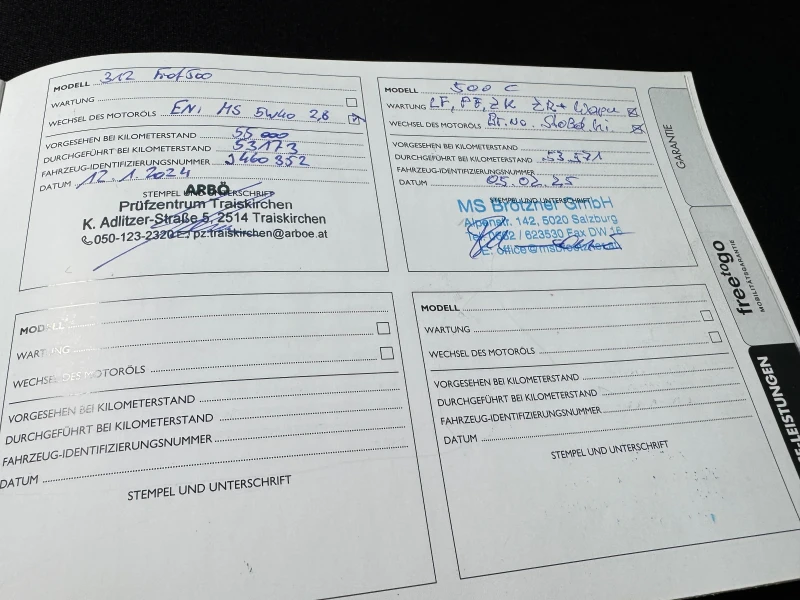 MODELL 312
WARTUNG
WECHSEL DES MOTORÖLS ENI MS 5W40 2,8
VORGESEHEN BEI KILOMETERSTAND 55 000
DURCHGEFÜHRT BEI KILOMETERSTAND 53173
FAHRZEUG-IDENTIFIZIERUNGSNUMMER J460352
DATUM 12.1.2024
STEMPEL UND UNTERSCHRIFT
ARBÖ
Prüfzentrum Traiskirchen
K. Adlitzer-Straße 5, 2514 Traiskirchen
050-123-2320 pz.traiskirchen@arboe.at
MODELL 500 C
WARTUNG LF, PF, ZK ZR+
WECHSEL DES MOTORÖLS
VORGESEHEN BEI KILOMETERSTAND
DURCHGEFÜHRT BEI KILOMETERSTAND 53.571
FAHRZEUG-IDENTIFIZIERUNGSNUMMER
DATUM 05.02.25
STEMPEL UND UNTERSCHRIFT
MS Brötzner GmbH
Alpenstr. 142, 5020 Salzburg
Tel. 0662 / 623530 Fax DW 16
E: office@
MODELL
WARTUNG
WECHSEL DES MOTORÖLS
VORGESEHEN BEI KILOMETERSTAND
DURCHGEFÜHRT BEI KILOMETERSTAND
FAHRZEUG-IDENTIFIZIERUNGSNUMMER
DATUM
STEMPEL UND UNTERSCHRIFT
MODELL
WARTUNG
WECHSEL DES MOTORÖLS
VORGESEHEN BEI KILOMETERSTAND
DURCHGEFÜHRT BEI KILOMETERSTAND
FAHRZEUG-IDENTIFIZIERUNGSNUMMER
DATUM
STEMPEL UND UNTERSCHRIFT
GARANTIE
free to go
MOBILITÄTSGARANTIE
E-LEISTUNGEN